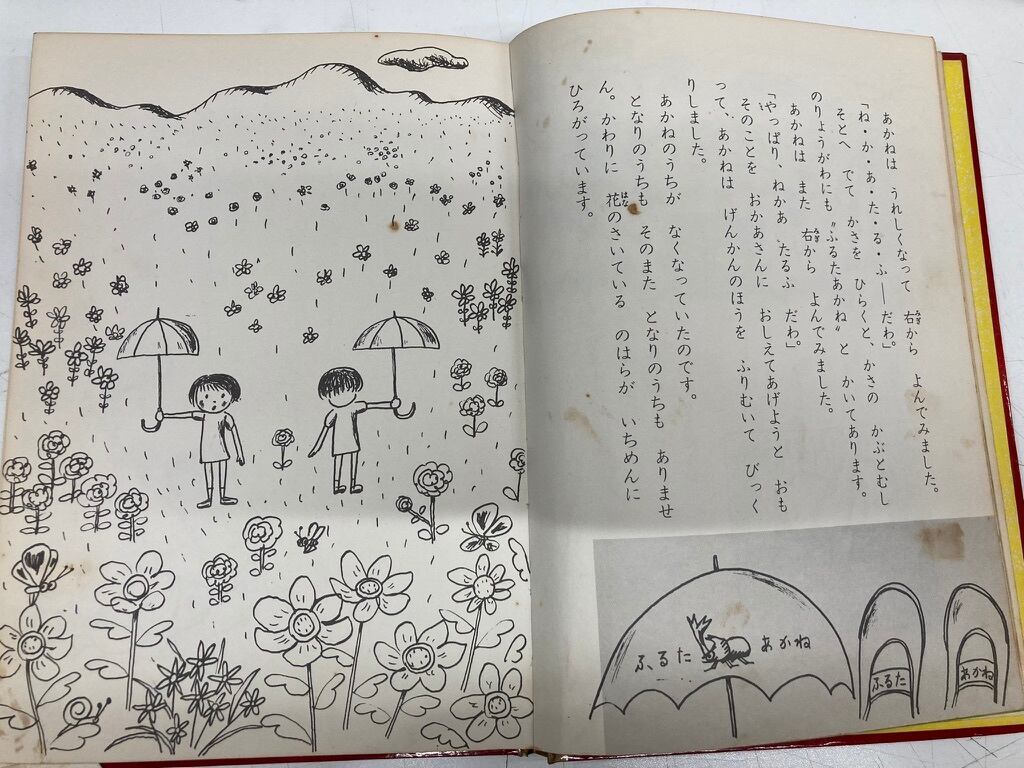 あかねは うれしくなって 右から よんでみました。
「ね・か・あ・た・る・ふ――だわ」。
そとへ でて かさを ひらくと、かさの かぶとむし
のりょうがわにも 〝ふるたあかね〟 と かいてあります。
あかねは また 右から よんでみました。
「やっぱり、ねかあ たるふ だわ」。
そのことを おかあさんに おしえてあげようと おも
って、あかねは げんかんのほうを ふりむいて びっく
りしました。
あかねのうちが なくなっていたのです。
となりのうちも そのまた となりのうちも ありませ
ん。かわりに 花のさいている のはらが いちめんに
ひろがっています。
ふるた あかね
ふるた
あかね